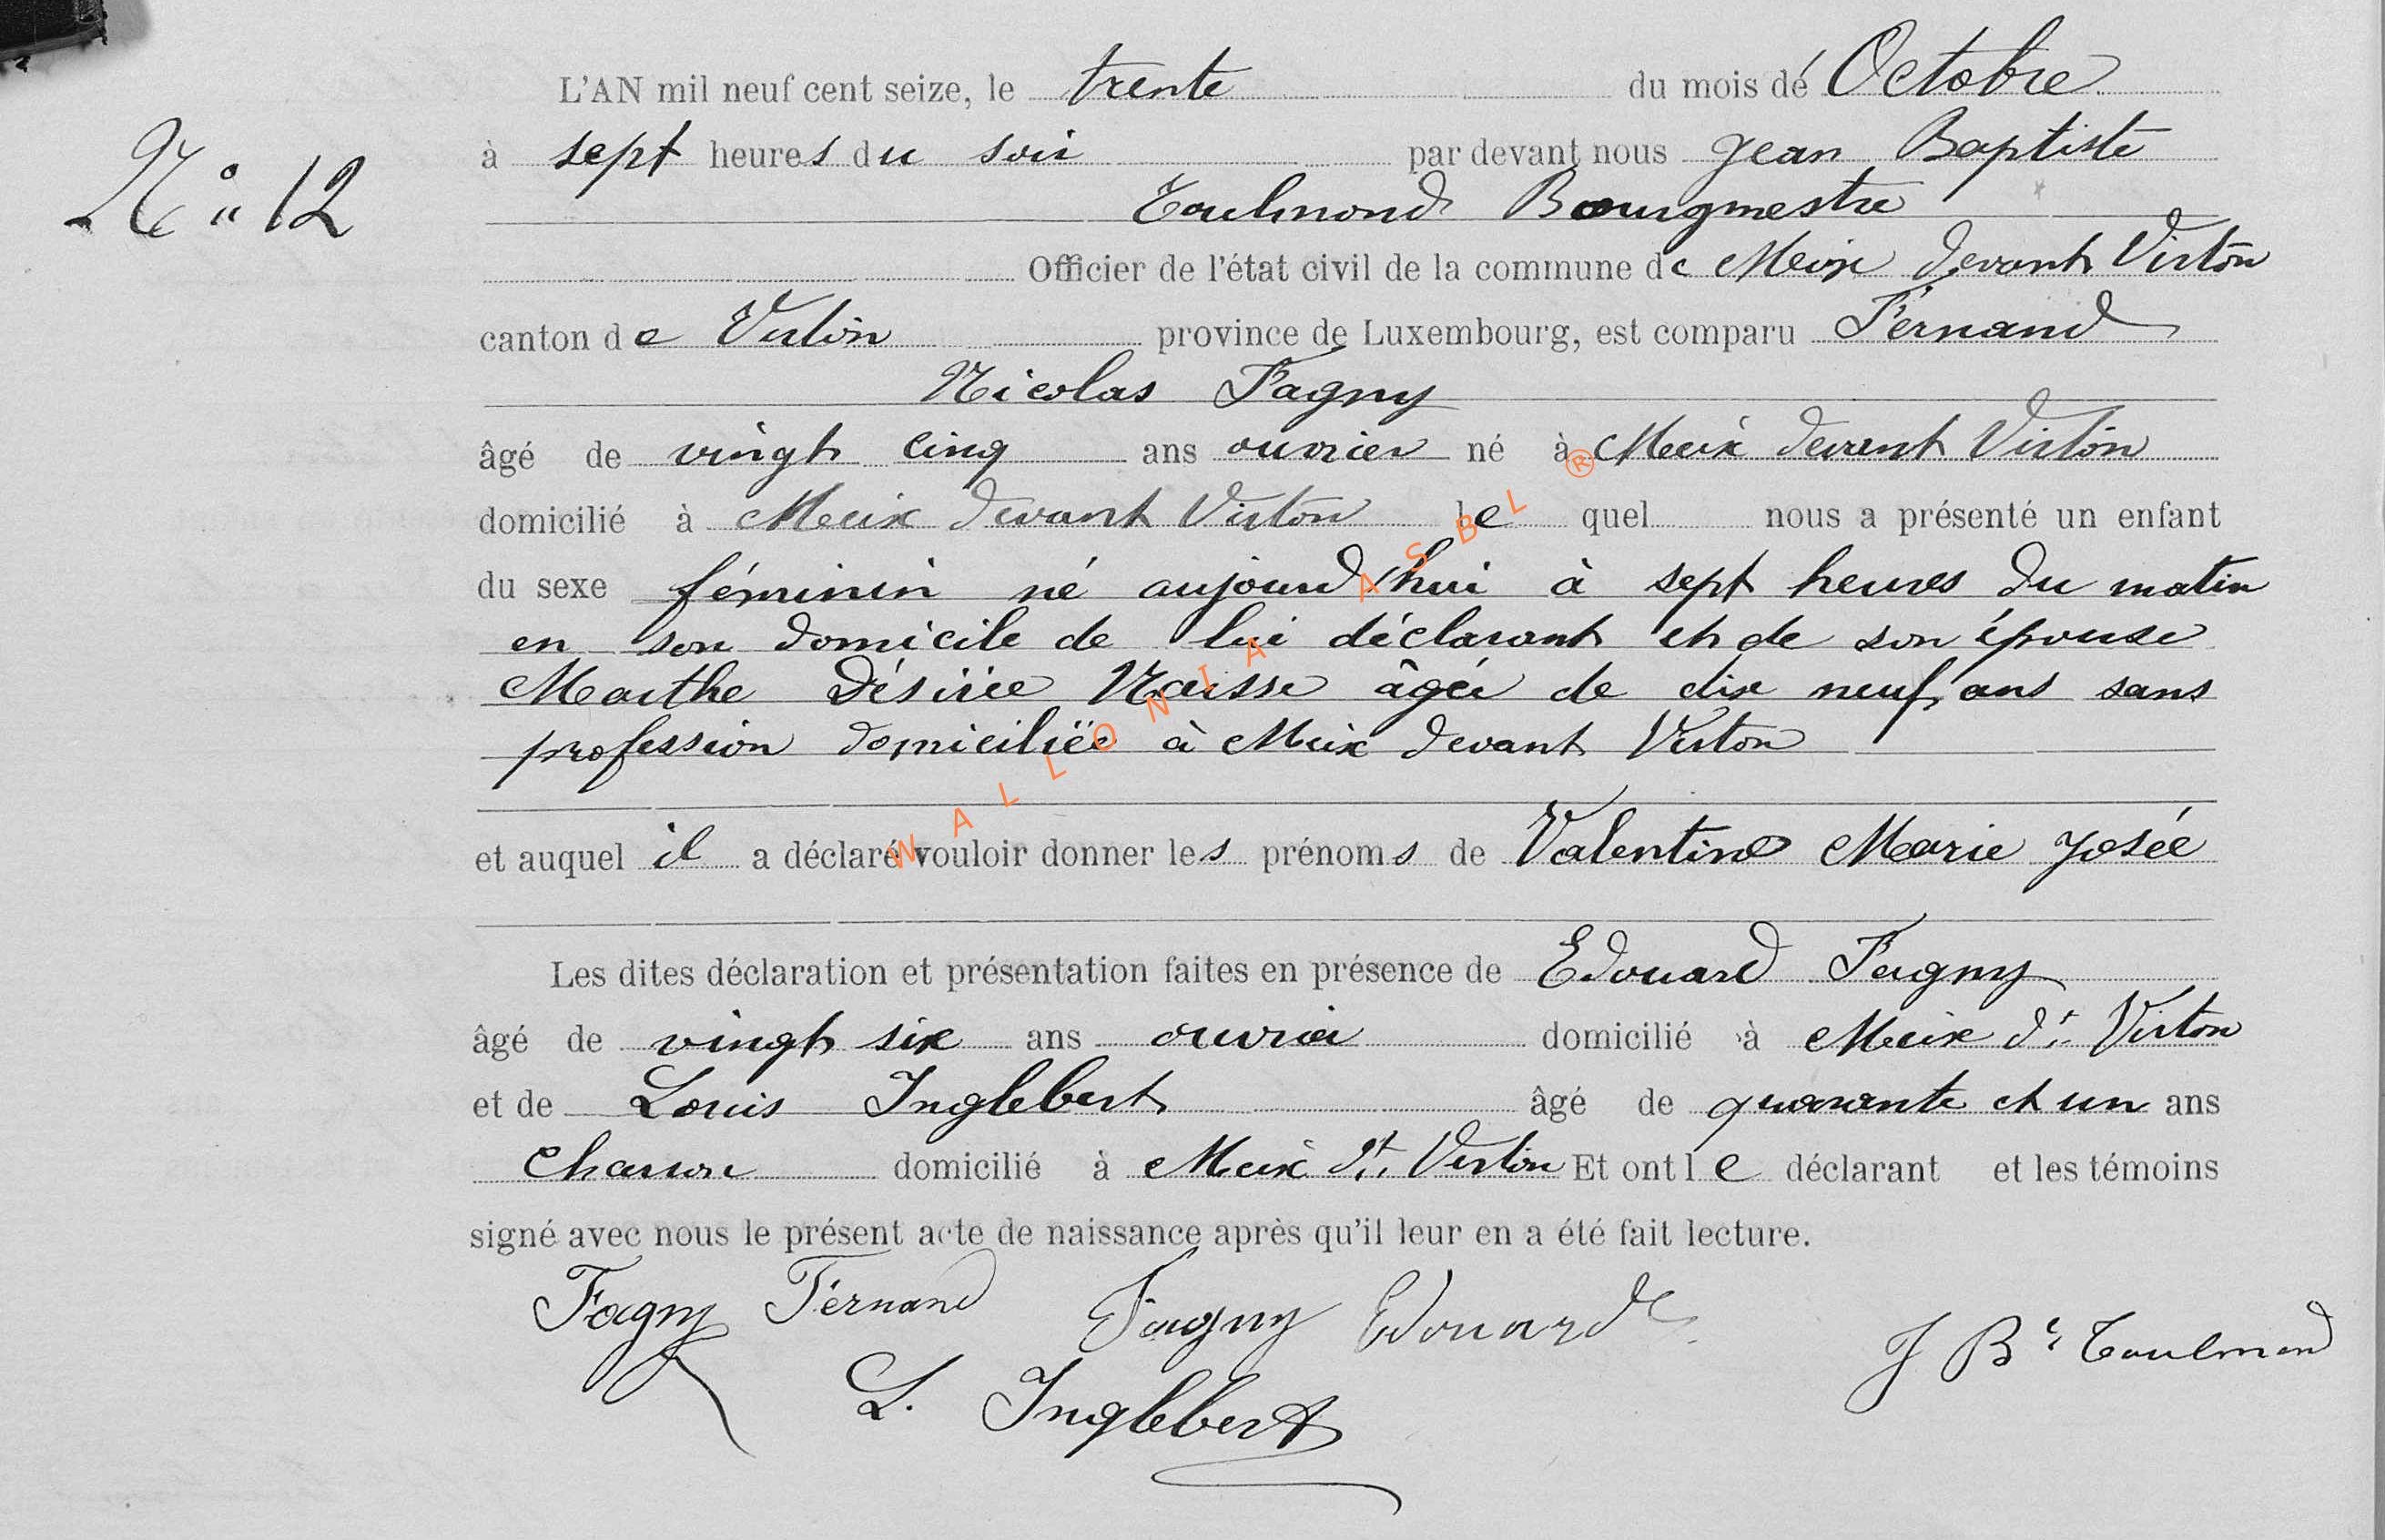 L'AN mil neuf cent seize, le trente du mois de Octobre
N° 12
à sept heures du soir par devant nous Jean Baptiste
Toulmond Bourgmestre
Officier de l'état civil de la commune de Meix devant Virton
canton de Virton province de Luxembourg, est comparu Fernand
Nicolas Fagny
âgé de vingt cinq ans ouvrier né à Meix devant Virton
domicilié à Meix devant Virton lequel nous a présenté un enfant
du sexe féminin né aujourd'hui à sept heures du matin
en son domicile de lui déclarant et de son épouse
Marthe Désirée age de dix neuf ans sans
profession domiciliée à Meix devant Virton
et auquel il a déclaré vouloir donner les prénoms de Valentine Marie Josée
Les dites déclaration et présentation faites en présence de Edouard Fagny
âgé de vingt six ans ouvrier domicilié à Meix dt Virton
et de Louis Inglebert âgé de quarante et un ans
domicilié à Meix dt Virton Et ont le déclarant et les témoins
signé avec nous le présent acte de naissance après qu'il leur en a été fait lecture.
Fagny Fernand Fagny Edouard
J Bte Toulmond
L. Inglebert
WALLONIA ASBL ®